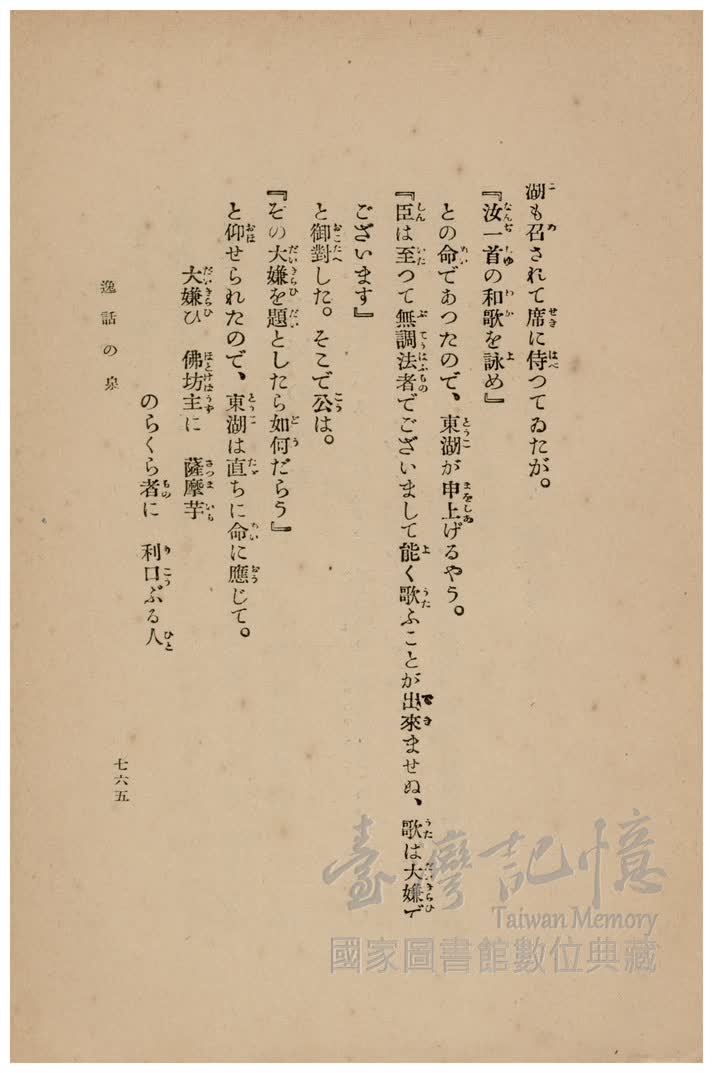 湖も召されて席に侍つてゐたが。
『汝一首の和歌を詠め』
との命であつたので、東湖が申上げるやう。
『臣は至つて無調法者でございまして能く歌ふことが出來ませぬ、歌は大嫌で
ございます』
と御對した。そこで公は。
『その大嫌を題としたら如何だらう』
と仰せられたので、東湖は直ちに命に應じて。
大嫌ひ　佛坊主に　薩摩芋
のらくら者に　利口ぶる人
逸話の泉
七六五
臺灣記憶
Taiwan Memory
國家圖書館數位典藏